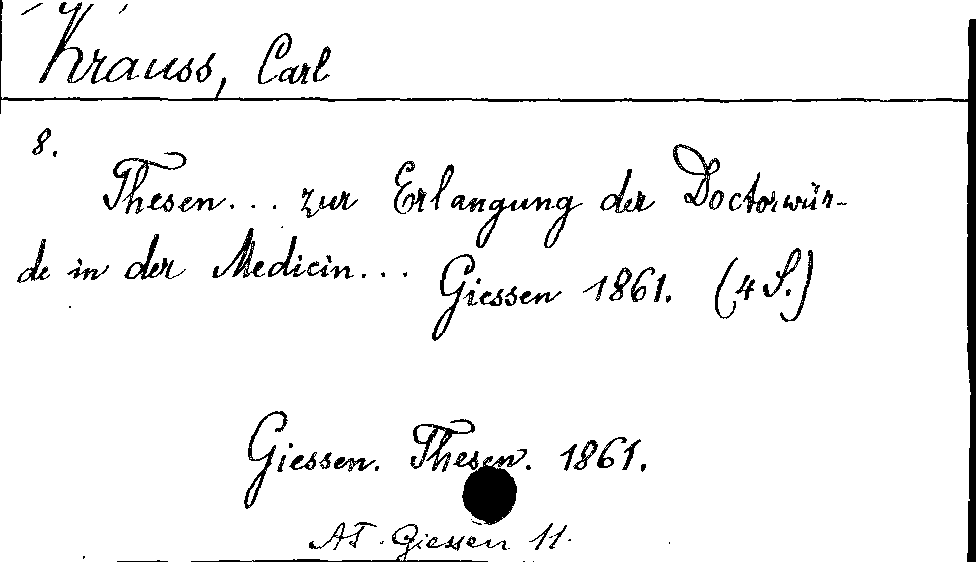 Krauss, Carl
8.
Thesen... zur Erlangung der Doctorwür-
de in der Medicin... Giessen 1861. (4 S.)
Giessen. Thesen. 1861.
AT. Giessen 11.